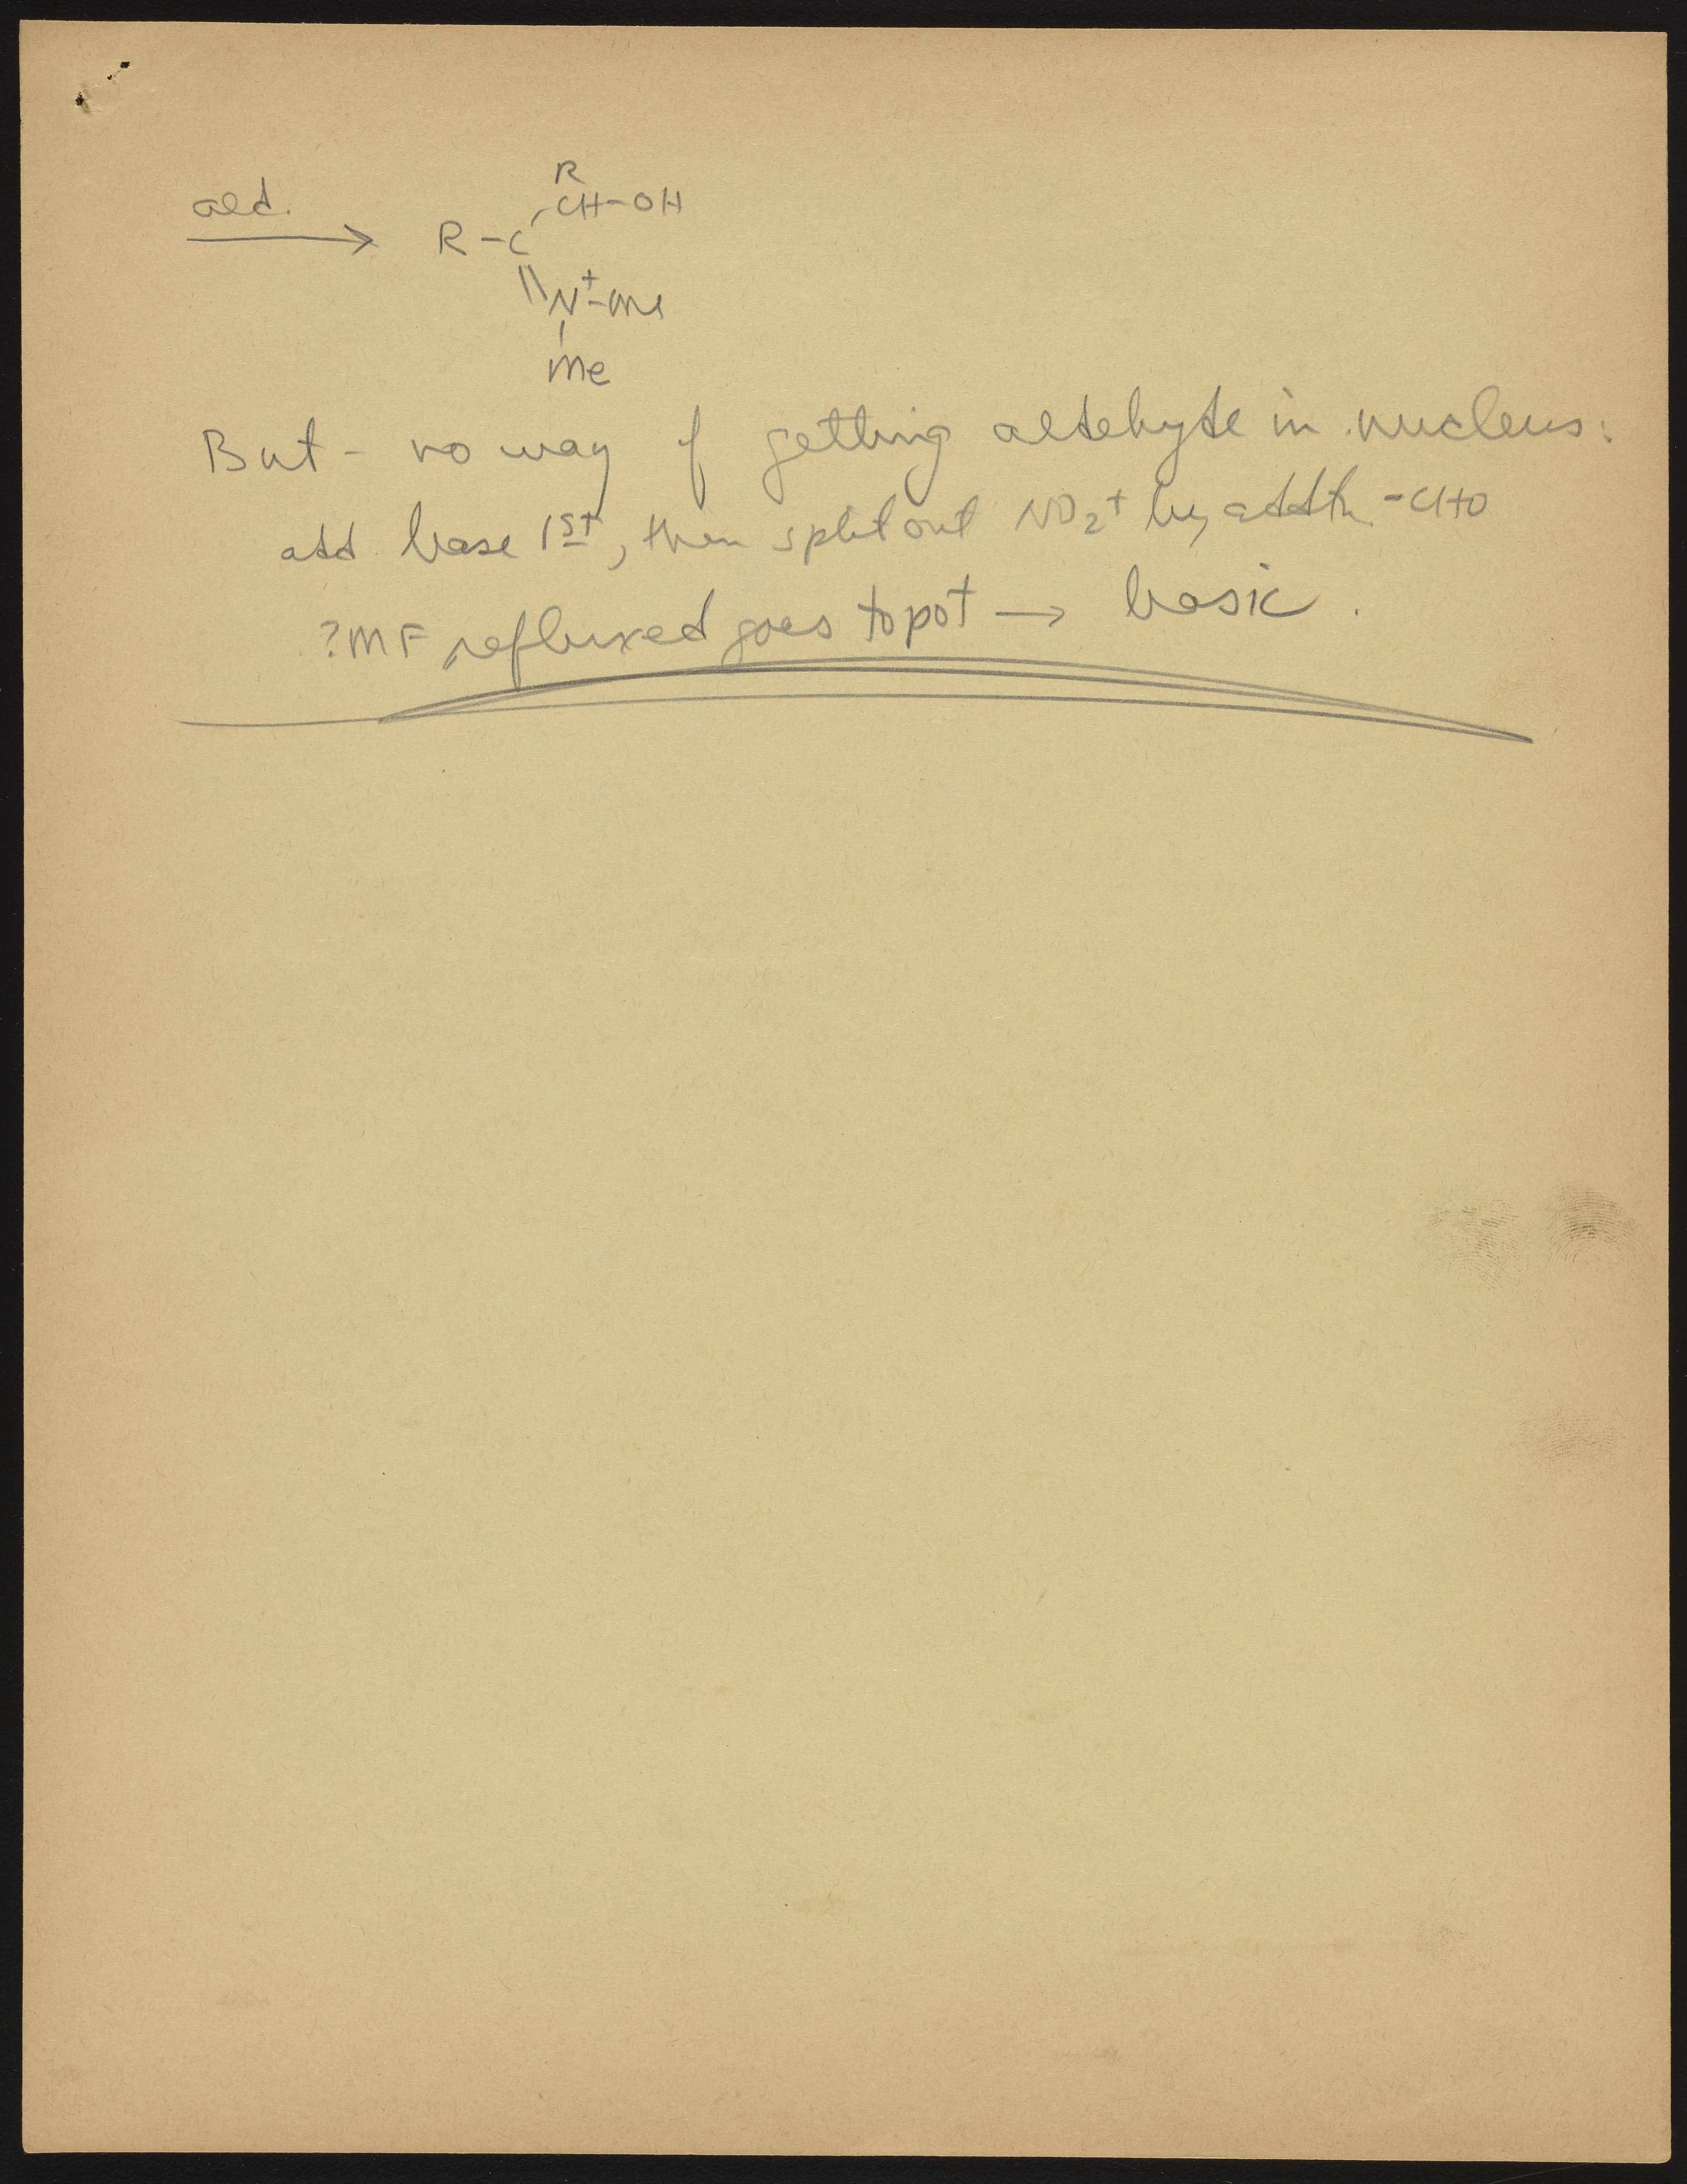 ald.
R
CH-OH
R-C
N+-Me
Me
But - no way of getting aldehyde in nucleus.
add base 1st, then split out NO2+ by addtn -CHO
?MF refluxed goes to pot → basic.